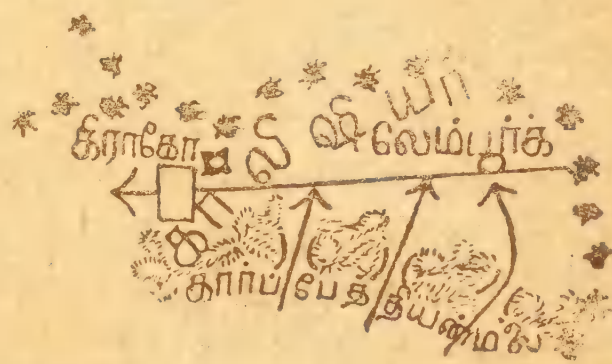 லி ஷி யா
கிராகோ லேம்பர்க்
கார்ப பேத தியன்மலை